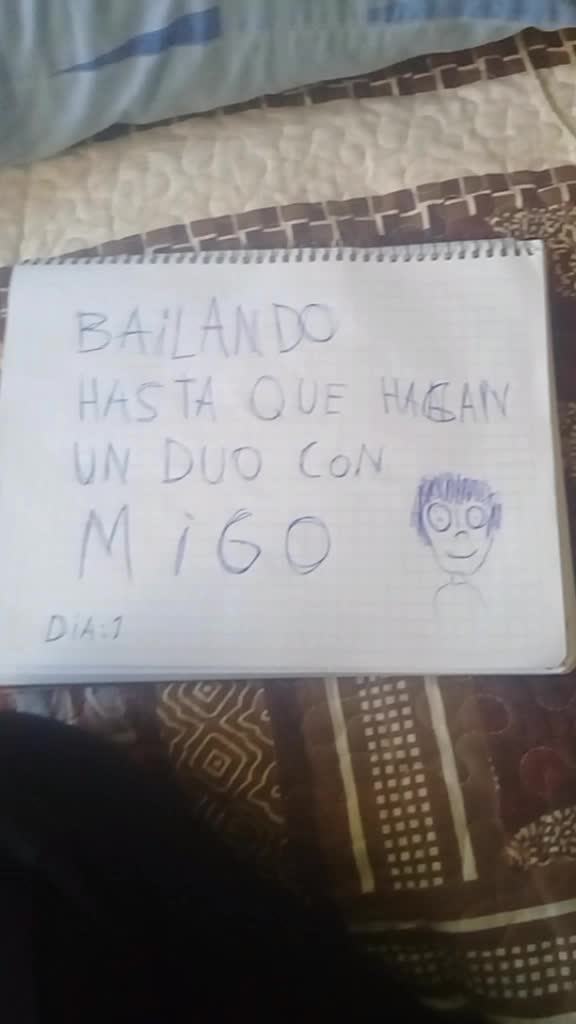 BAiLANDO
HASTA QUE HAGAN
UN DUO CON
MiGO
DiA:1